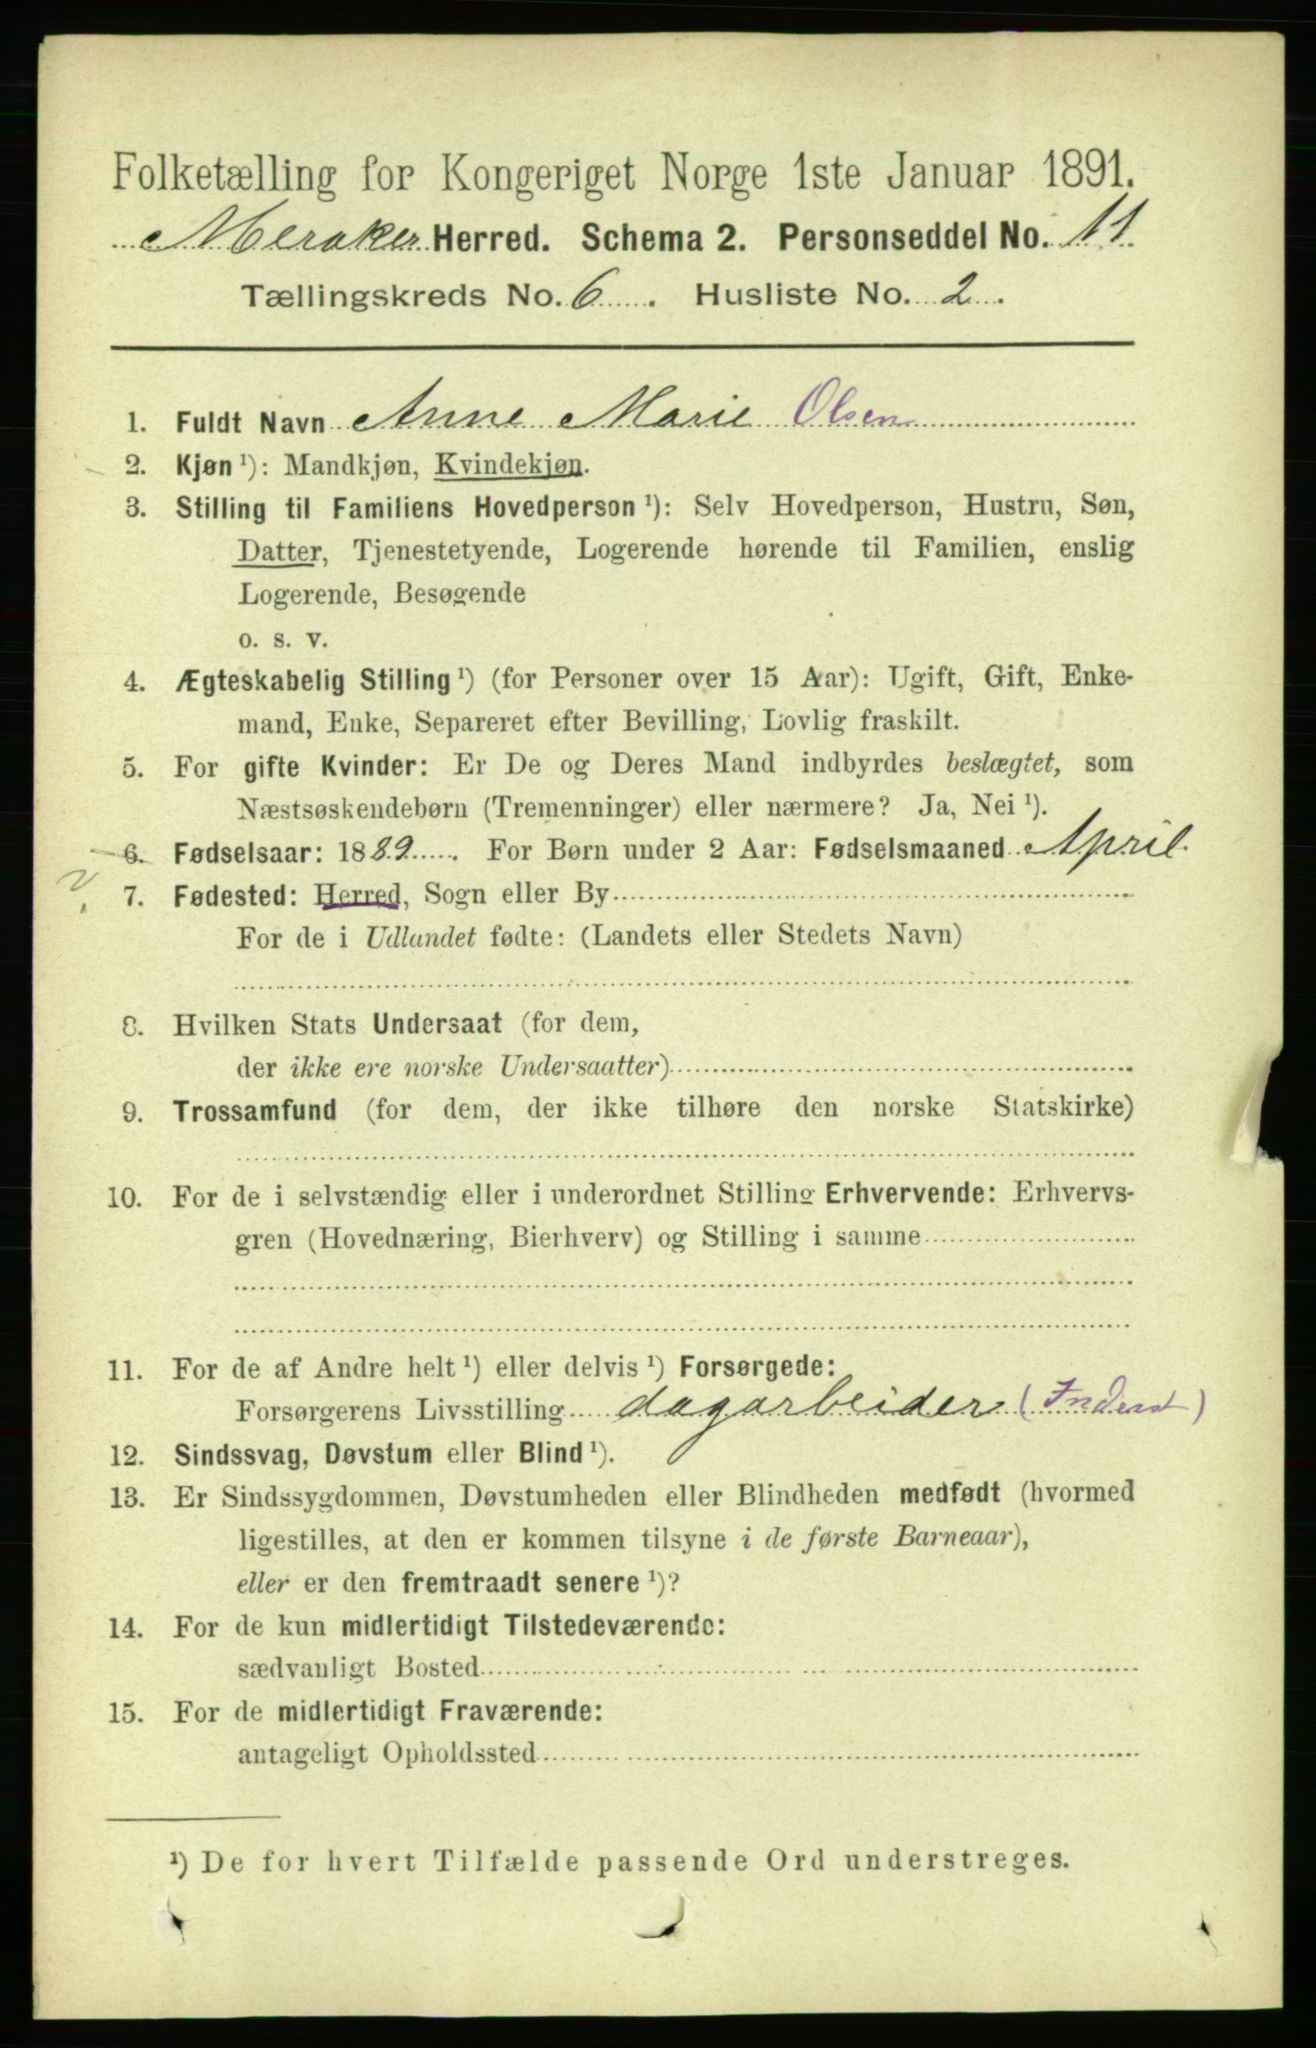 Folketælling for Kongeriget Norge 1ste Januar 1891.
Meraker Herred. Schema 2. Personseddel No. 11.
Tællingskreds No. 6. Husliste No. 2.
1. Fuldt Navn Anne Marie Olsen
2. Kjøn ¹): Mandkjøn, Kvindekjøn.
3. Stilling til Familiens Hovedperson ¹): Selv Hovedperson, Hustru, Søn,
Datter, Tjenestetyende, Logerende hørende til Familien, enslig
Logerende, Besøgende
o. s. v.
4. Ægteskabelig Stilling ¹) (for Personer over 15 Aar): Ugift, Gift, Enke-
mand, Enke, Separeret efter Bevilling, Lovlig fraskilt.
5. For gifte Kvinder: Er De og Deres Mand indbyrdes beslægtet, som
Næstsøskendebørn (Tremenninger) eller nærmere? Ja, Nei ¹).
6. Fødselsaar: 1889. For Børn under 2 Aar: Fødselsmaaned April.
? 7. Fødested: Herred, Sogn eller By
For de i Udlandet fødte: (Landets eller Stedets Navn)
8. Hvilken Stats Undersaat (for dem,
der ikke ere norske Undersaatter)
9. Trossamfund (for dem, der ikke tilhøre den norske Statskirke)
10. For de i selvstændig eller i underordnet Stilling Erhvervende: Erhvervs-
gren (Hovednæring, Bierhverv) og Stilling i samme
11. For de af Andre helt ¹) eller delvis ¹) Forsørgede:
Forsørgerens Livsstilling dagarbeider (Inderst)
12. Sindssvag, Døvstum eller Blind ¹).
13. Er Sindssygdommen, Døvstumheden eller Blindheden medfødt (hvormed
ligestilles, at den er kommen tilsyne i de første Barneaar),
eller er den fremtraadt senere ¹)?
14. For de kun midlertidigt Tilstedeværende:
sædvanligt Bosted
15. For de midlertidigt Fraværende:
antageligt Opholdssted
¹) De for hvert Tilfælde passende Ord understreges.